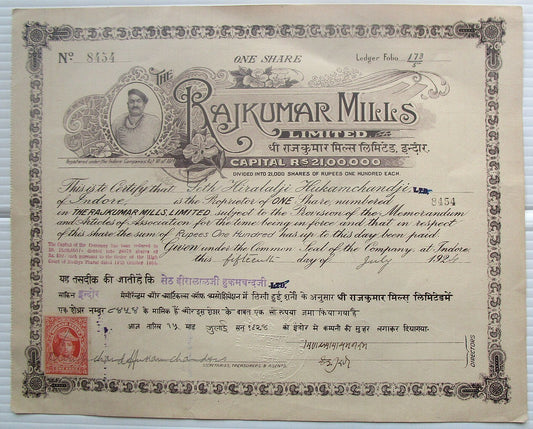 No. 8454
ONE SHARE
Ledger Folio 173
THE
RAJKUMAR MILLS
LIMITED.
श्री राजकुमार मिल्स लिमिटेड, इन्दौर.
Registered under the Indore Companies Act
CAPITAL Rs 21,00,000
DIVIDED INTO 21,000 SHARES OF RUPEES ONE HUNDRED EACH.
This is to Certify that Seth Hiralalji Hukamchandji LTD.
of Indore, is the Proprietor of ONE Share, numbered 8454
in THE RAJKUMAR MILLS, LIMITED, subject to the Provision of the Memorandum
and Articles of Association for the time being in force and that in respect
of this share the sum of Rupees One Hundred has up to this day been paid.
The Capital of the Company has been reduced to
Given under the Common Seal of the Company, at Indore
this fifteenth day of July 1924
यह तसदीक की जाती है कि सेठ हीरालालजी हुकमचन्दजी LTD.
साकिन इन्दौर मेमोरेन्डम और आर्टिकल्स ऑफ असोसिएशन में लिखी हुई शर्तों के अनुसार श्री राजकुमार मिल्स लिमिटेडमें
एक शेअर नम्बर ८४५४ के मालिक हैं और इस शेअर के बाबत एक सौ रुपया जमा किया गया है
आज तारीख १५ माह जुलाई सन १९२४ को इंदौर में कम्पनी की मुहर लगाकर दिया गया
SECRETARIES, TREASURERS, & AGENTS.
DIRECTORS